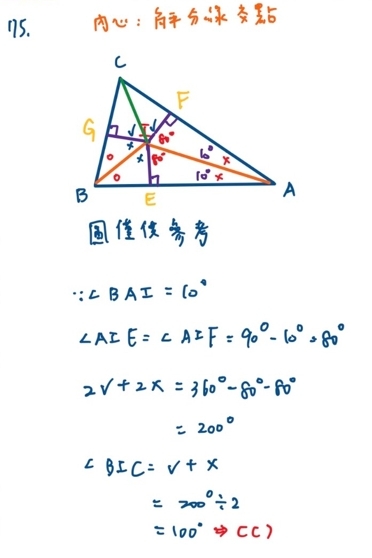 175.
內心：角平分線交點
C
F
G
√ I √ 80°
○ × × 80° 10° ×
○ 10° ×
B E A
圖僅供參考
∵∠BAI = 10°
∠AIE = ∠AIF = 90° - 10° = 80°
2√ + 2× = 360° - 80° - 80°
= 200°
∠BIC = √ + ×
= 200° ÷ 2
= 100° ⇒ (C)